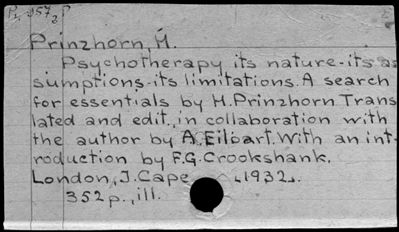 Prinzhorn, H.
Psychotherapy its nature-its as
sumptions-its limitations. A search
for essentials by H. Prinzhorn Trans
lated and edit. in collaboration with
the author by A. Eiloart. With an int-
roduction by F.G. Crookshank.
London, J. Cape 1932.
352 p., ill.